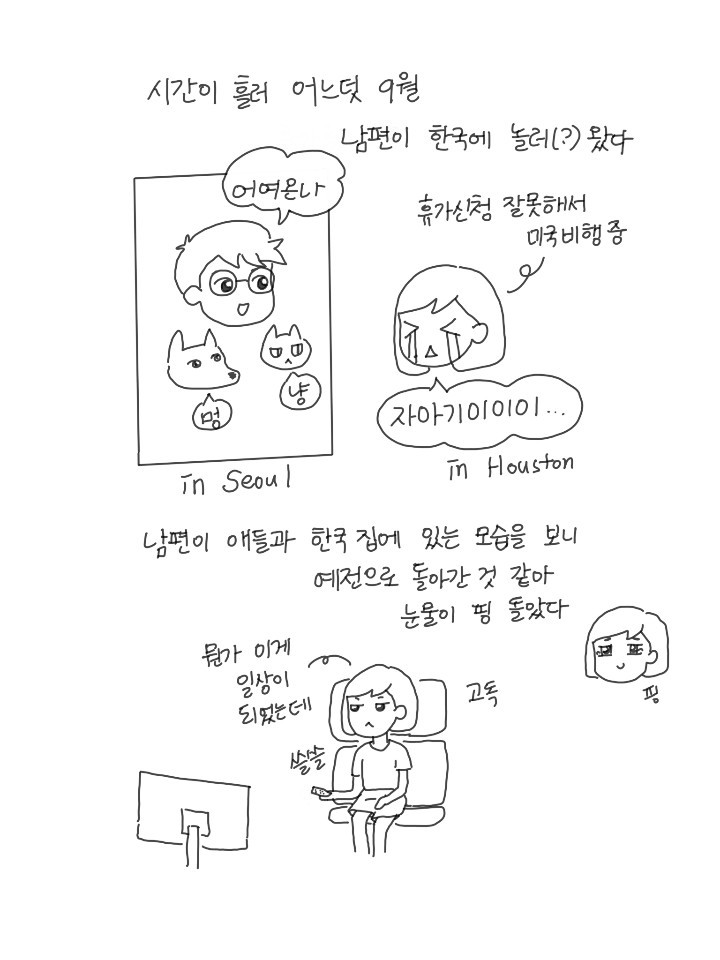 시간이 흘러 어느덧 9월
남편이 한국에 놀러(?) 왔다
어여온나
멍
냥
in Seoul
휴가신청 잘못해서
미국비행 중
자아기이이이이...
in Houston
남편이 애들과 한국 집에 있는 모습을 보니
예전으로 돌아간 것 같아
눈물이 핑 돌았다
핑
뭔가 이게
일상이
되었는데
고독
쓸쓸